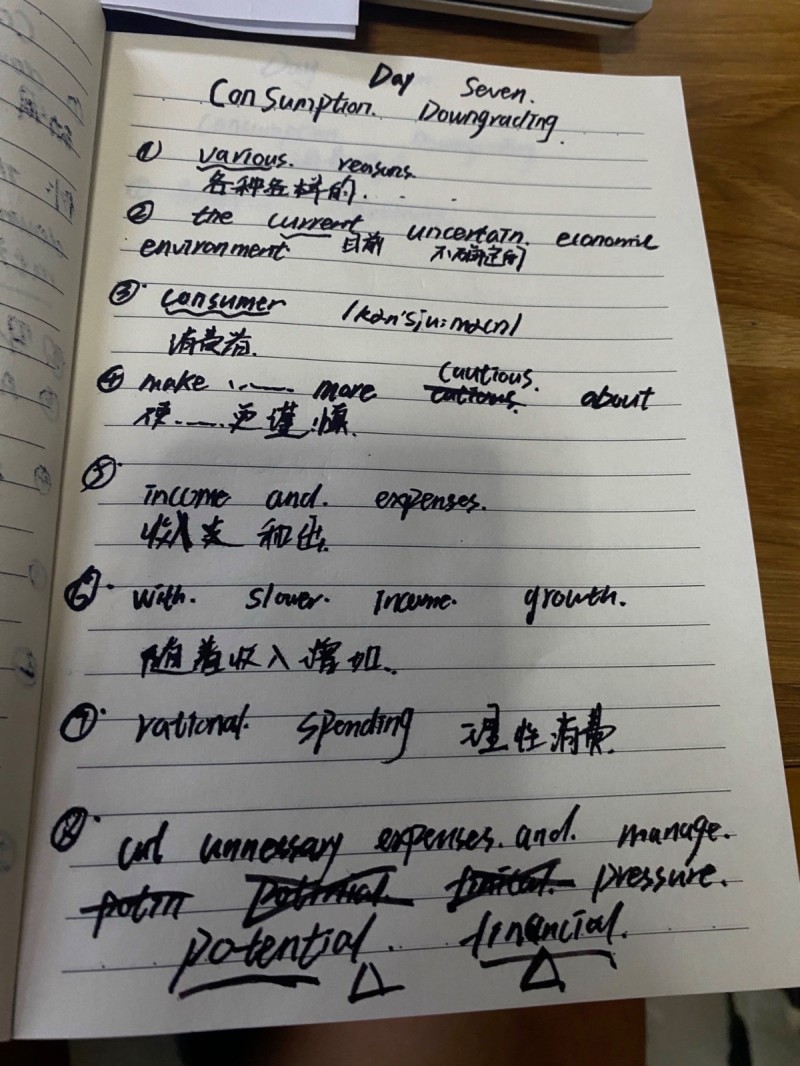 Day Seven.
Consumption. Downgrading.
① various. reasons.
各种各样的.
② the current uncertain. economic
environment 目前 不确定的
③ consumer
消费者.
④ make ...... more cautious. about
使......更谨慎.
⑤
income and. expenses.
收入支 和出.
⑥ with. slower. income. growth.
随着收入增加.
⑦ rational. spending 理性消费
⑧ cut unnessary expenses. and. manage.
pressure.
potential. financial.